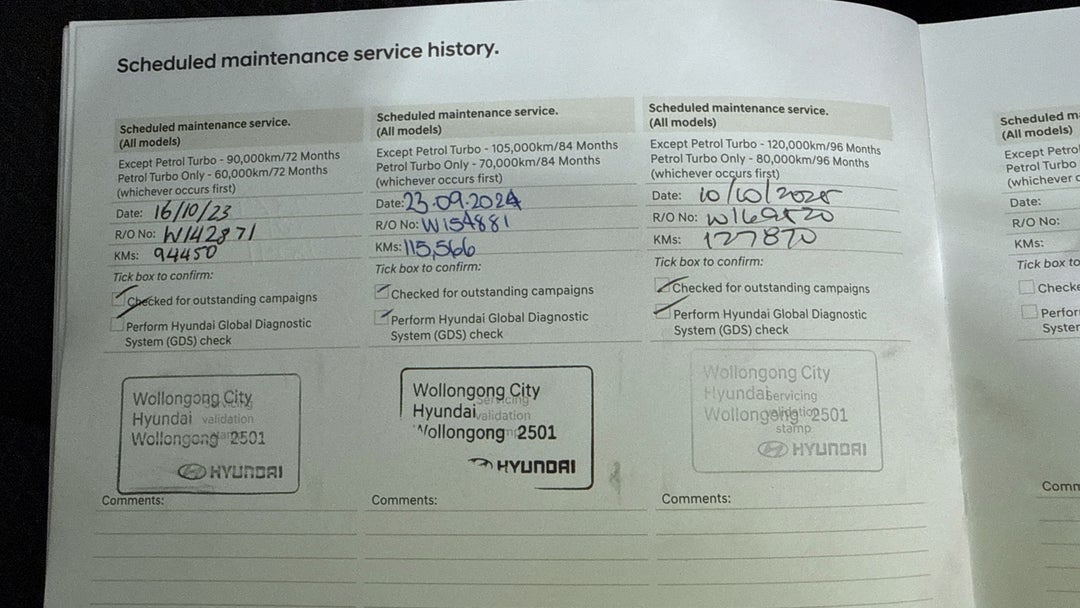 Scheduled maintenance service history.
Scheduled maintenance service.
(All models)
Except Petrol Turbo - 90,000km/72 Months
Petrol Turbo Only - 60,000km/72 Months
(whichever occurs first)
Date: 16/10/23
R/O No: W142871
KMs: 94450
Tick box to confirm:
Checked for outstanding campaigns
Perform Hyundai Global Diagnostic
System (GDS) check
Wollongong City
Servicing
Hyundai validation
Wollongong 2501
HYUNDAI
Comments:
Scheduled maintenance service.
(All models)
Except Petrol Turbo - 105,000km/84 Months
Petrol Turbo Only - 70,000km/84 Months
(whichever occurs first)
Date: 23.09.2024
R/O No: W154881
KMs: 115,566
Tick box to confirm:
Checked for outstanding campaigns
Perform Hyundai Global Diagnostic
System (GDS) check
Wollongong City
Servicing
Hyundai validation
Wollongong 2501
HYUNDAI
Comments:
Scheduled maintenance service.
(All models)
Except Petrol Turbo - 120,000km/96 Months
Petrol Turbo Only - 80,000km/96 Months
(whichever occurs first)
Date: 10/10/2025
R/O No:
KMs: 127870
Tick box to confirm:
Checked for outstanding campaigns
Perform Hyundai Global Diagnostic
System (GDS) check
Wollongong City
Hyundai Servicing
validation
Wollongong 2501
stamp
HYUNDAI
Comments:
Scheduled
(All models)
Except
Petrol Turbo
(whichever
Date:
R/O No:
KMs:
Tick box to